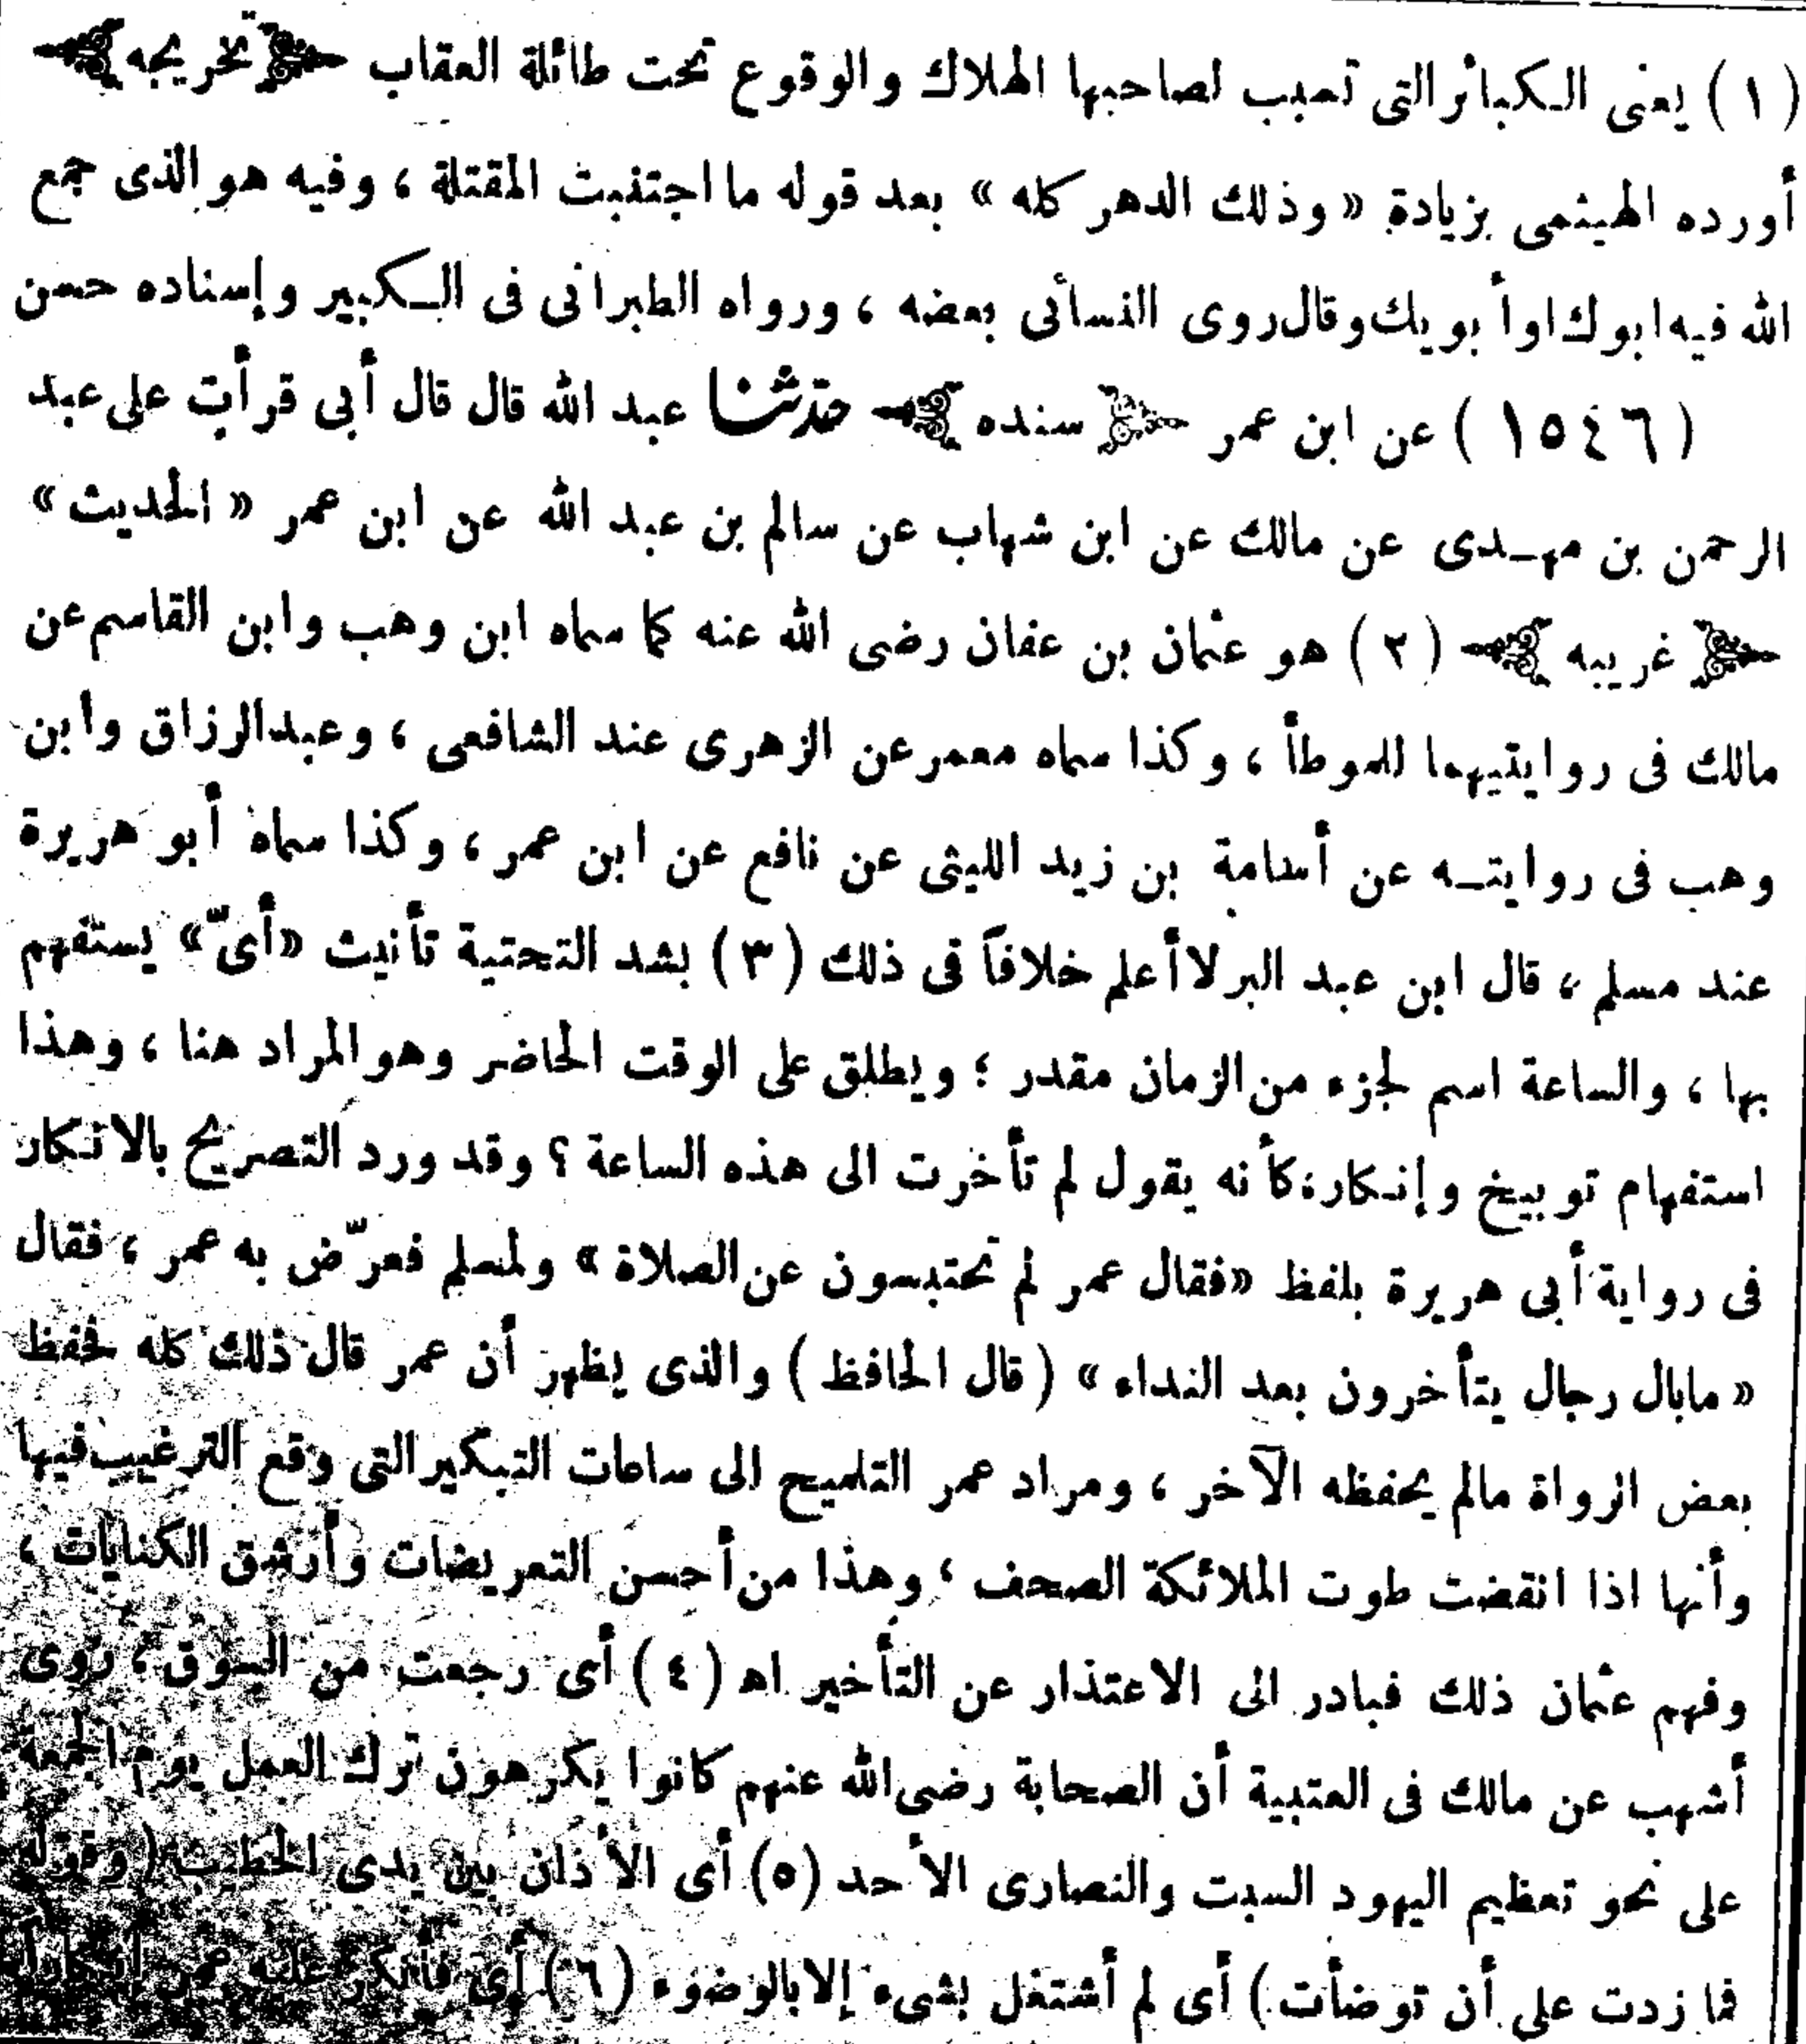 (١) يعنى الكبائر التى تسبب لصاحبها الهلاك والوقوع تحت طائلة العقاب ﴿تخريجه﴾
أورده الهيثمى بزيادة « وذلك الدهر كله » بعد قوله ما اجتنبت المقتلة ، وفيه هو الذى جمع
الله فيه ابوك اوأبويك وقال روى النسائى بعضه ، ورواه الطبرانى فى الكبير وإسناده حسن
(١٥٤٦) عن ابن عمر ﴿سنده﴾ حدّثنا عبد الله قال قال أبى قرأت على عبد
الرحمن بن مهدى عن مالك عن ابن شهاب عن سالم بن عبد الله عن ابن عمر « الحديث »
﴿غريبه﴾ (٢) هو عثمان بن عفان رضى الله عنه كما سماه ابن وهب وابن القاسم عن
مالك فى روايتيهما للموطأ ، وكذا سماه معمر عن الزهرى عند الشافعى ، وعبدالرزاق وابن
وهب فى روايته عن أسامة بن زيد الليثى عن نافع عن ابن عمر ، وكذا سماه أبو هريرة
عند مسلم ، قال ابن عبد البر لاأعلم خلافاً فى ذلك (٣) بشد التحتية تأنيث «أىّ» يستفهم
بها ، والساعة اسم لجزء من الزمان مقدر ؛ ويطلق على الوقت الحاضر وهو المراد هنا ، وهذا
استفهام توبيخ وإنكار،كأنه يقول لم تأخرت الى هذه الساعة ؟ وقد ورد التصريح بالانكار
فى رواية أبى هريرة بلفظ «فقال عمر لم تحتبسون عن الصلاة » ولمسلم فعرّض به عمر ، فقال
« مابال رجال يتأخرون بعد النداء » ( قال الحافظ ) والذى يظهر أن عمر قال ذلك كله فحفظ
بعض الرواة مالم يحفظه الآخر ، ومراد عمر التلميح الى ساعات التبكير التى وقع الترغيب فيها
وأنها اذا انقضت طوت الملائكة الصحف ؛ وهذا من أحسن التعريضات وأرشق الكنايات ،
وفهم عثمان ذلك فبادر الى الاعتذار عن التأخير اه (٤) أى رجعت من السوق ، روى
أشهب عن مالك فى العتبية أن الصحابة رضى الله عنهم كانوا يكرهون ترك العمل يوم الجمعة
على نحو تعظيم اليهود السبت والنصارى الأحد (٥) أى الأذان بين يدى الخطيب (وقوله
فما زدت على أن توضأت ) أى لم أشتغل بشىء إلابالوضوء (٦) أى فأنكر عليه عمر إنكاراً